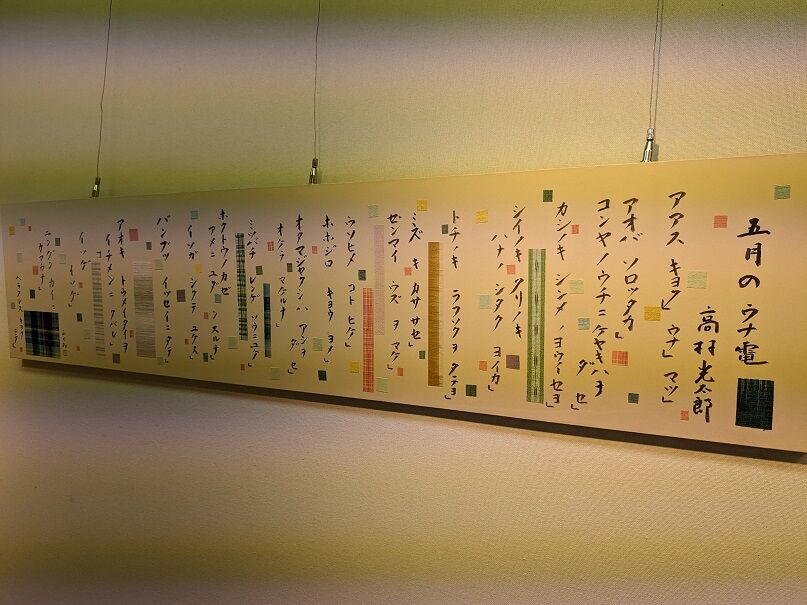 五月のウナ電
高村光太郎
アアス キヨク」 ウナ」 マツ」
アオバ ソロッタカ」
コンヤノウチニケヤキハヲ
ダ セ」
カシノキ シンメノヨウイセヨ」
シイノキ クリノキ
ハナノ シタク ヨイカ」
トチノキ ラフソクヲ タテヨ」
ミズ キ カササセ」
ゼンマイ ウズ ヲ マケ」
ウソヒメ コト ヒケ」
ホホジロ キヨウ ヨメ」
オタマジヤクシハ アンヨ
ヲ ダ セ」
オケラ ナマケルナ」
ミツバチ レンゲ ソウニユケ」
ホクトウノカゼ
アメニ ユダ ンスルナ」
イソガ シクテ ユケヌ」
バンブツ イツセイニタテ」
アオキ トウメイタイヨ
イチメンニ クバレ」
イソゲ
イソゲ」
ニンゲンカイニ
カマウナ」